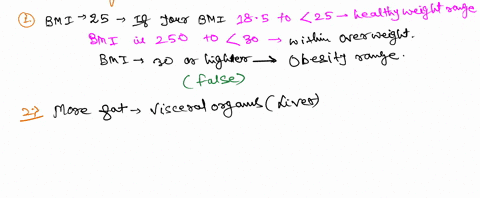 ① BMI → 25 → If your BMI 18.5 to < 25 → healthy weight range
BMI is 250 to < 30 → within overweight.
BMI → 30 or highter → Obesity range.
(false)
2:→ More fat → visceral organs (Liver)